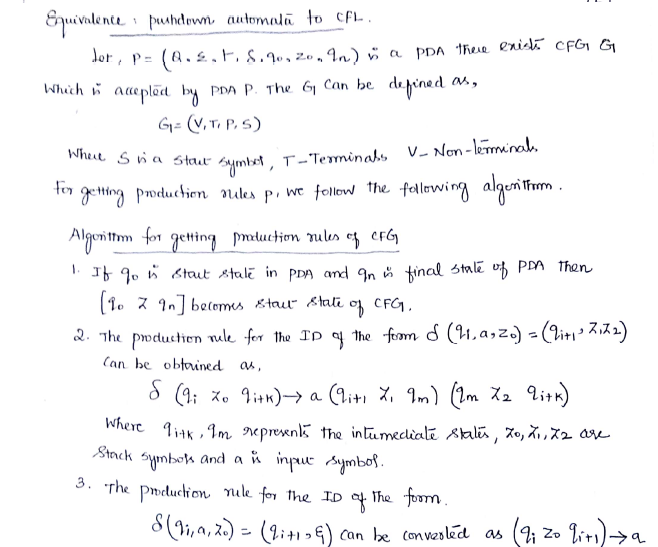 Equivalence : pushdown automata to CFL.
Let, P = (Q, Σ, Γ, δ, q0, z0, qn) is a PDA there exists CFG G
Which is accepted by PDA P. The G can be defined as,
G = (V, T, P, S)
Where S is a start symbol, T - Terminals V - Non-terminals
For getting production rules P, we follow the following algorithm.
Algorithm for getting production rules of CFG
1. If q0 is start state in PDA and qn is final state of PDA then
[q0 Z qn] becomes start state of CFG.
2. The production rule for the ID of the form δ (qi, a, z0) = (qi+1, Z1Z2)
Can be obtained as,
δ (qi z0 qi+k) → a (qi+1 Z1 qm) (qm Z2 qi+k)
Where qi+k, qm represents the intermediate states, z0, Z1, Z2 are
Stack symbols and a is input symbol.
3. The production rule for the ID of the form.
δ(qi, a, z0) = (qi+1, ε) can be converted as (qi z0 qi+1) → a